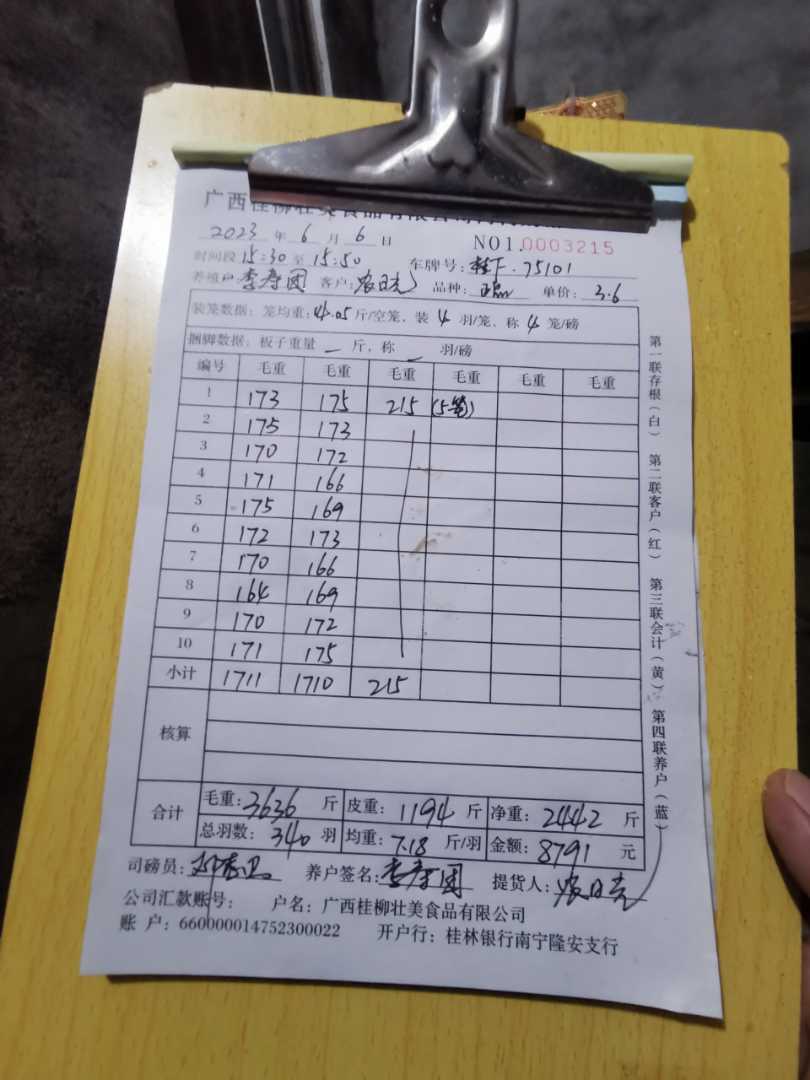 广西桂柳壮美食品有限公司
2023 年 6 月 6 日 NO1.0003215
时间段 15:30 至 15:50 车牌号: 桂F.75101
养殖户 李寿团 客户: 单价: 3.6 品种:
装笼数据: 笼均重: 14.05 斤/空笼、装 4 羽/笼、称 4 笼/磅
捆脚数据: 板子重量 — 斤, 称 — 羽/磅
编号 毛重 毛重 毛重 毛重 毛重 毛重
1 173 175 215 (5笼)
2 175 173
3 170 172
4 171 166
5 175 169
6 172 173
7 170 166
8 164 169
9 170 172
10 171 175
小计 1711 1710 215
核算
合计 毛重: 3636 斤 皮重: 1194 斤 净重: 2442 斤
总羽数: 340 羽 均重: 7.18 斤/羽 金额: 8791 元
司磅员: 养户签名: 李寿团 提货人:
公司汇款账号: 户名: 广西桂柳壮美食品有限公司
账 户: 660000014752300022 开户行: 桂林银行南宁隆安支行
第一联存根(白) 第二联客户(红) 第三联会计(黄) 第四联养户(蓝)